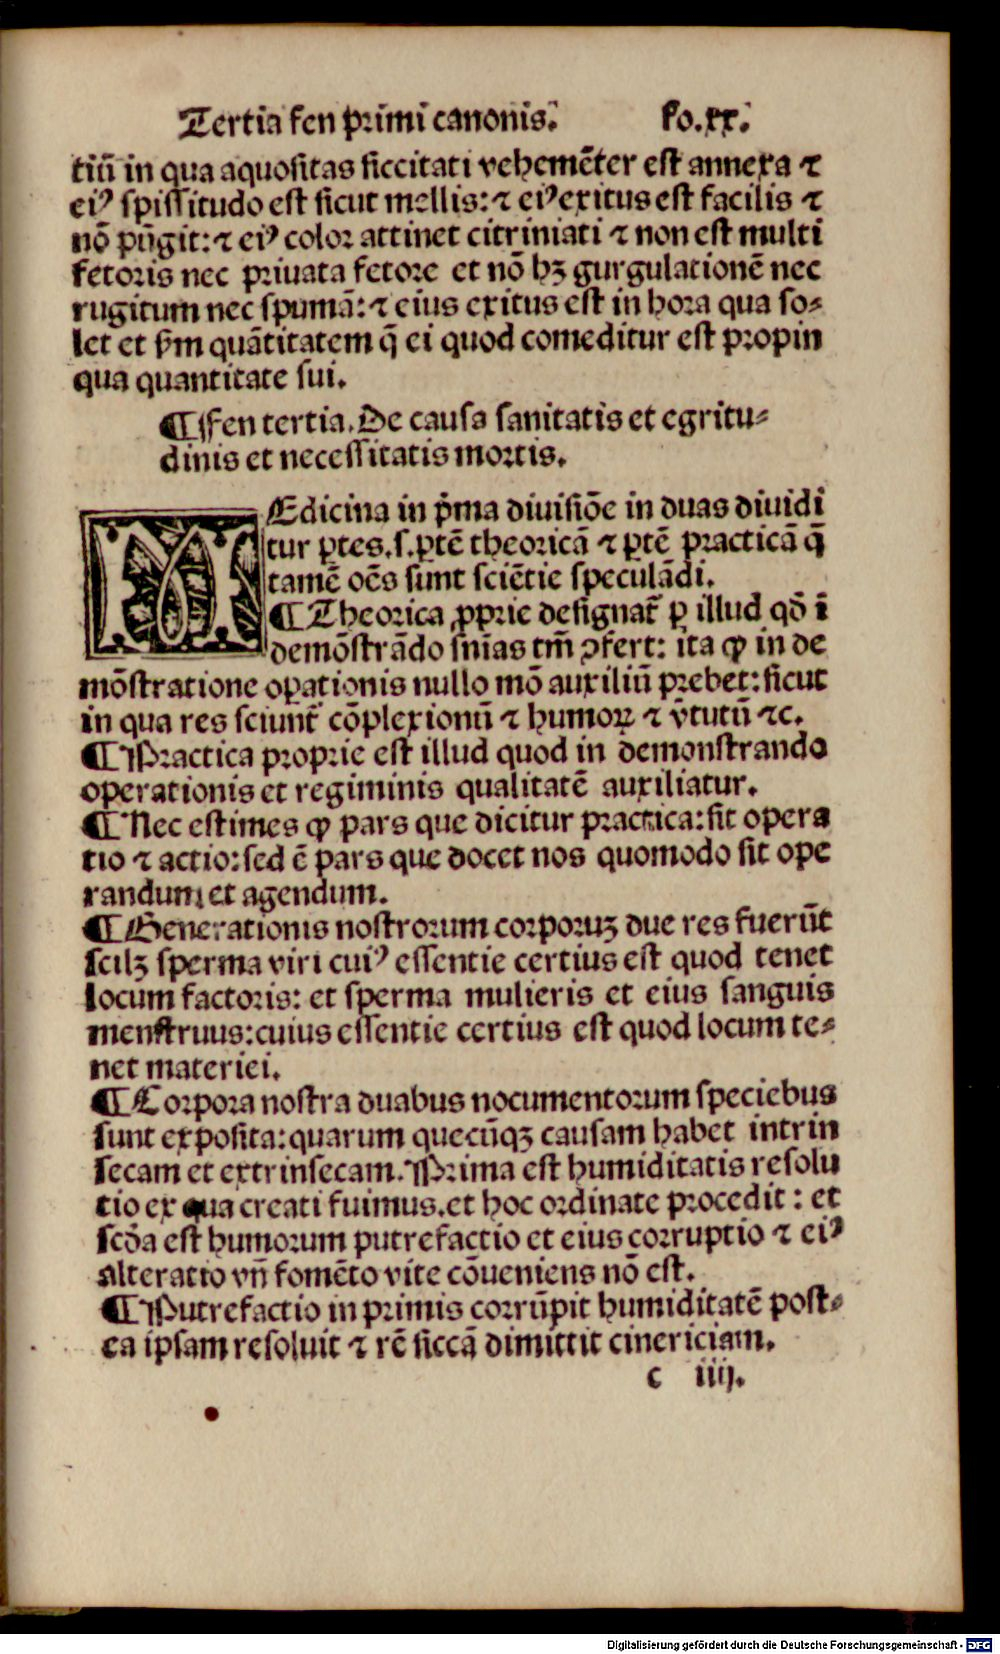 Tertia fen primi canonis. Fo.xx.
tiũ in qua aquositas siccitati vehemẽter est annexa ⁊
eiꝰ spissitudo est sicut mellis: ⁊ eiꝰ exitus est facilis ⁊
nõ pũgit: ⁊ eiꝰ color attinet citriniati ⁊ non est multi
fetoris nec priuata fetore et nõ hꝫ gurgulationẽ nec
rugitum nec spumã: ⁊ eius exitus est in hora qua so⸗
let et ẜm quãtitatem q̃ ei quod comeditur est propin
qua quantitate sui.
¶ Fen tertia. De causa sanitatis et egritu⸗
dinis et necessitatis mortis.
MEdicina in p̃ma diuisiõe in duas diuidi
tur ꝑtes .s. ꝑtẽ theoricã ⁊ ꝑtẽ practicã q̃
tamẽ oẽs sunt sciẽtie speculãdi.
¶ Theorica ꝓprie designat̃ ꝑ illud qd̃ ĩ
demõstrãdo sñias tm̃ ꝯfert: ita ꝙ in de
mõstratione oꝑationis nullo mõ auxiliũ prebet: sicut
in qua res sciunt̃ cõplexionũ ⁊ humoꝝ ⁊ v̓tutũ ⁊c.
¶ Practica proprie est illud quod in demonstrando
operationis et regiminis qualitatẽ auxiliatur.
¶ Nec estimes ꝙ pars que dicitur practica: sit opera
tio ⁊ actio: sed ẽ pars que docet nos quomodo sit ope
randum et agendum.
¶ Generationis nostrorum corporuꝫ due res fuerũt
scilꝫ sperma viri cuiꝰ essentie certius est quod tenet
locum factoris: et sperma mulieris et eius sanguis
menstruus: cuius essentie certius est quod locum te⸗
net materiei.
¶ Corpora nostra duabus nocumentorum speciebus
sunt exposita: quarum quecũqꝫ causam habet intrin
secam et extrinsecam. Prima est humiditatis resolu
tio ex qua creati fuimus. et hoc ordinate procedit: et
scd̃a est humorum putrefactio et eius corruptio ⁊ eiꝰ
alteratio vñ fomẽto vite cõueniens nõ est.
¶ Putrefactio in primis corrũpit humiditatẽ post⸗
ea ipsam resoluit ⁊ rẽ siccã dimittit cinericiam.
c iiij.
Digitalisierung gefördert durch die Deutsche Forschungsgemeinschaft - DFG